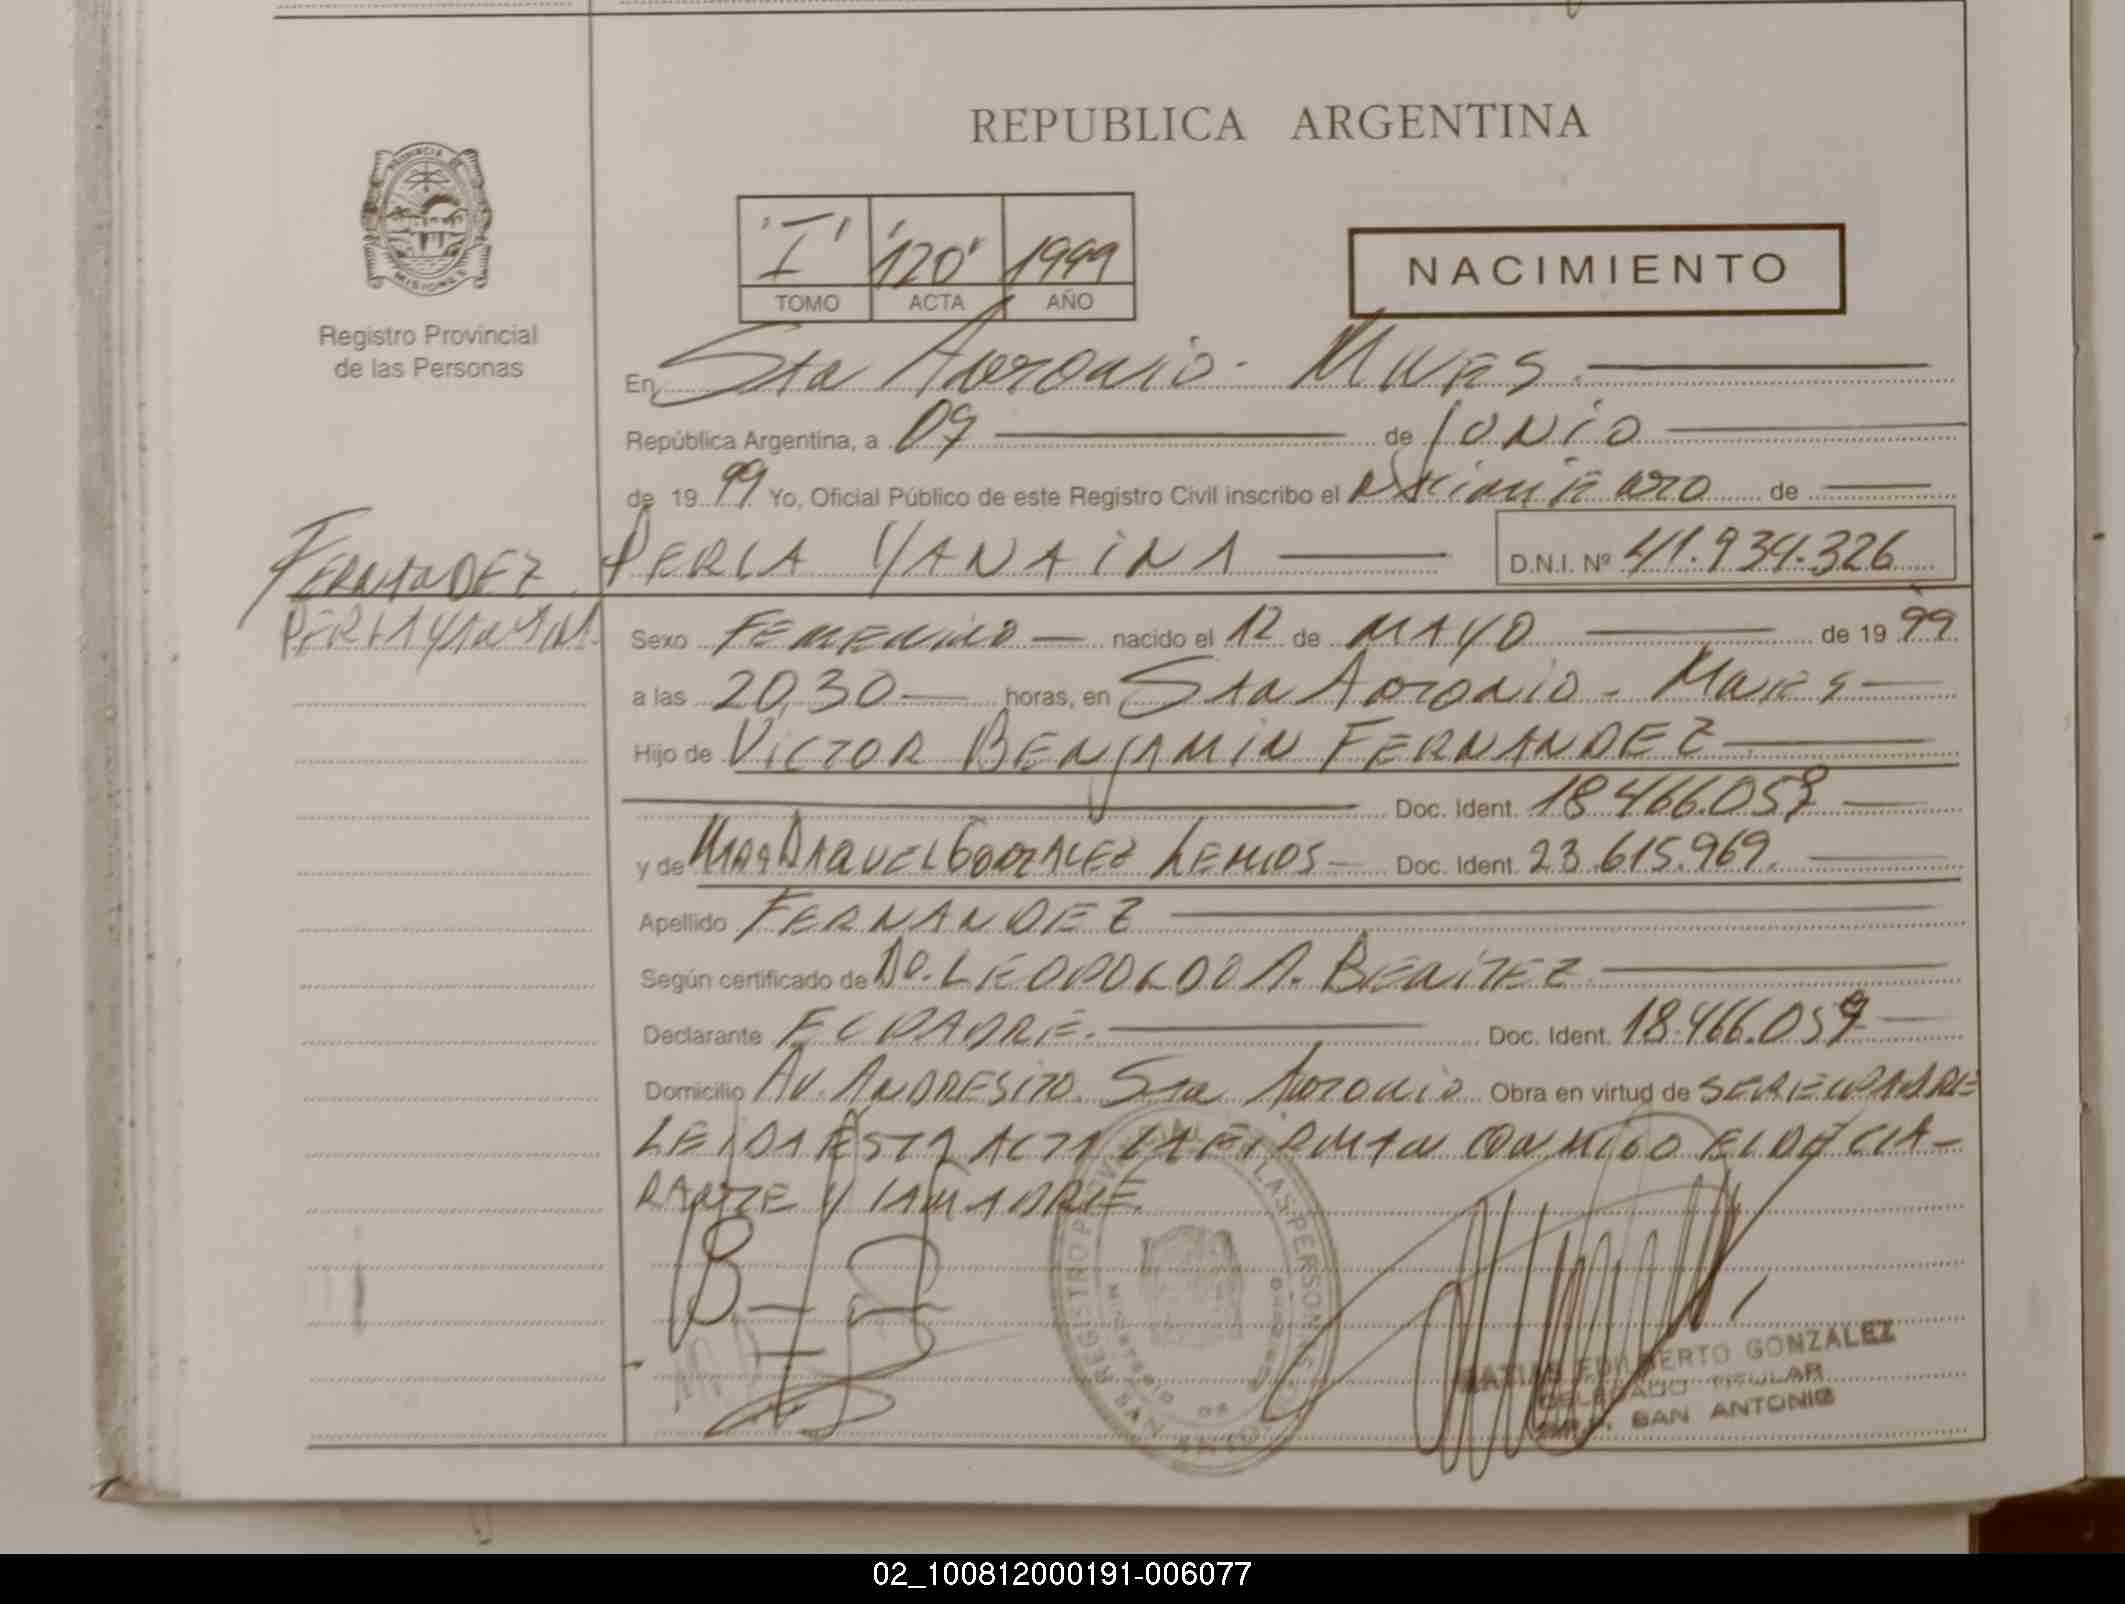 REPUBLICA ARGENTINA
PROVINCIA DE
MISIONES
Registro Provincial
de las Personas
"I" "120" 1999
TOMO ACTA AÑO
NACIMIENTO
En Sⁿ Antonio - Mnes
República Argentina, a 09 de Junio
de 1999 Yo, Oficial Público de este Registro Civil inscribo el nacimiento de
FERNANDEZ PERLA YANAINA D.N.I. Nº 41.934.326
PERLA YANAINA
Sexo FEMENINO nacido el 12 de MAYO de 1999
a las 20,30 horas, en Sⁿ Antonio - Mnes
Hijo de VICTOR BENJAMIN FERNANDEZ
Doc. Ident. 18.466.059
y de RAQUEL GONZALEZ LEMOS Doc. Ident. 23.615.969.
Apellido FERNANDEZ
Según certificado de DR. LEOPOLDO A. BENITEZ
Declarante EL PADRE. Doc. Ident. 18.466.059
Domicilio AV. ANDRESITO Sⁿ Antonio Obra en virtud de SER EL PADRE
LEIDA ESTA ACTA LA FIRMAN CONMIGO EL DECLA-
RANTE Y LA MADRE
GONZALEZ
DELEGADO TITULAR
SAN ANTONIO
02_100812000191-006077